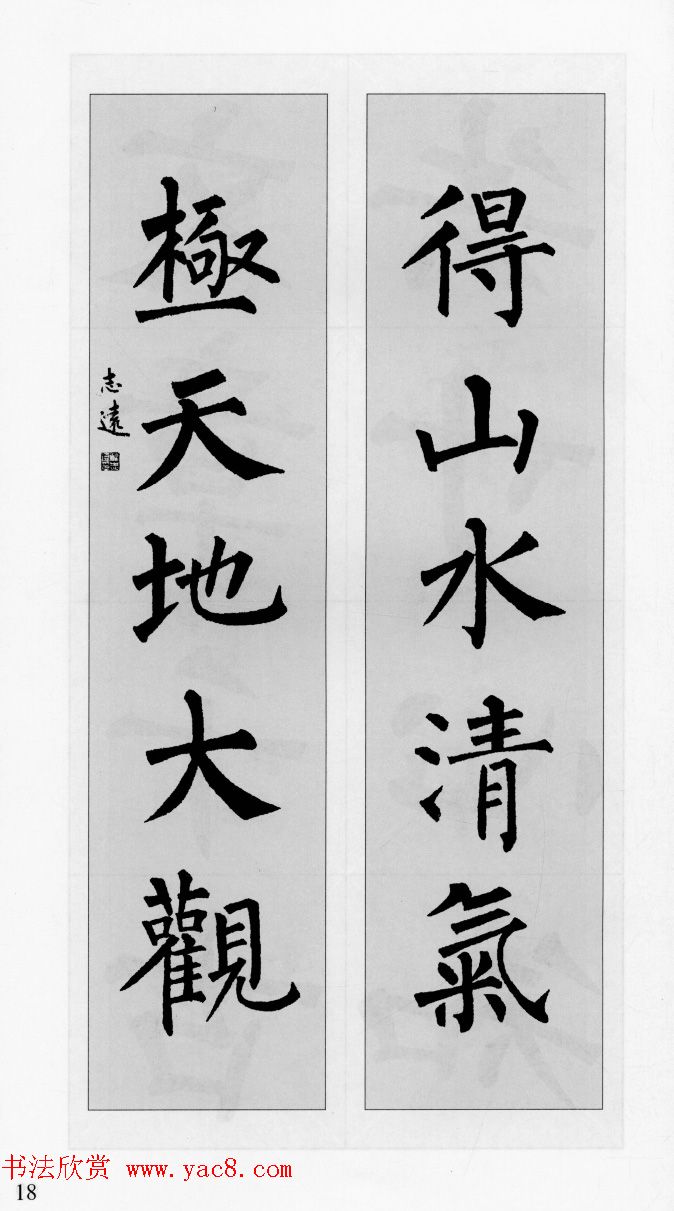 得山水清氣
極天地大觀
志遠
书法欣赏 www.yac8.com
18